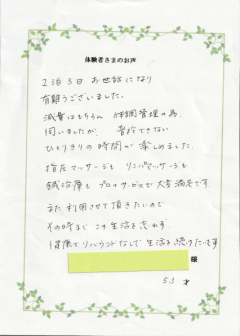 体験者さまのお声
2泊3日 お世話になり
有難うございました。
減量はもちろん 体調管理の為、
伺いましたが、普段できない
ひとりきりの時間が楽しめました。
指圧マッサージも リンパマッサージも
鍼治療も プロのサービスで大変満足です
また利用させて頂きたいので
その時まで この生活を忘れず
習慣でリバウンドなしで 生活を続けたいです
様
53 才